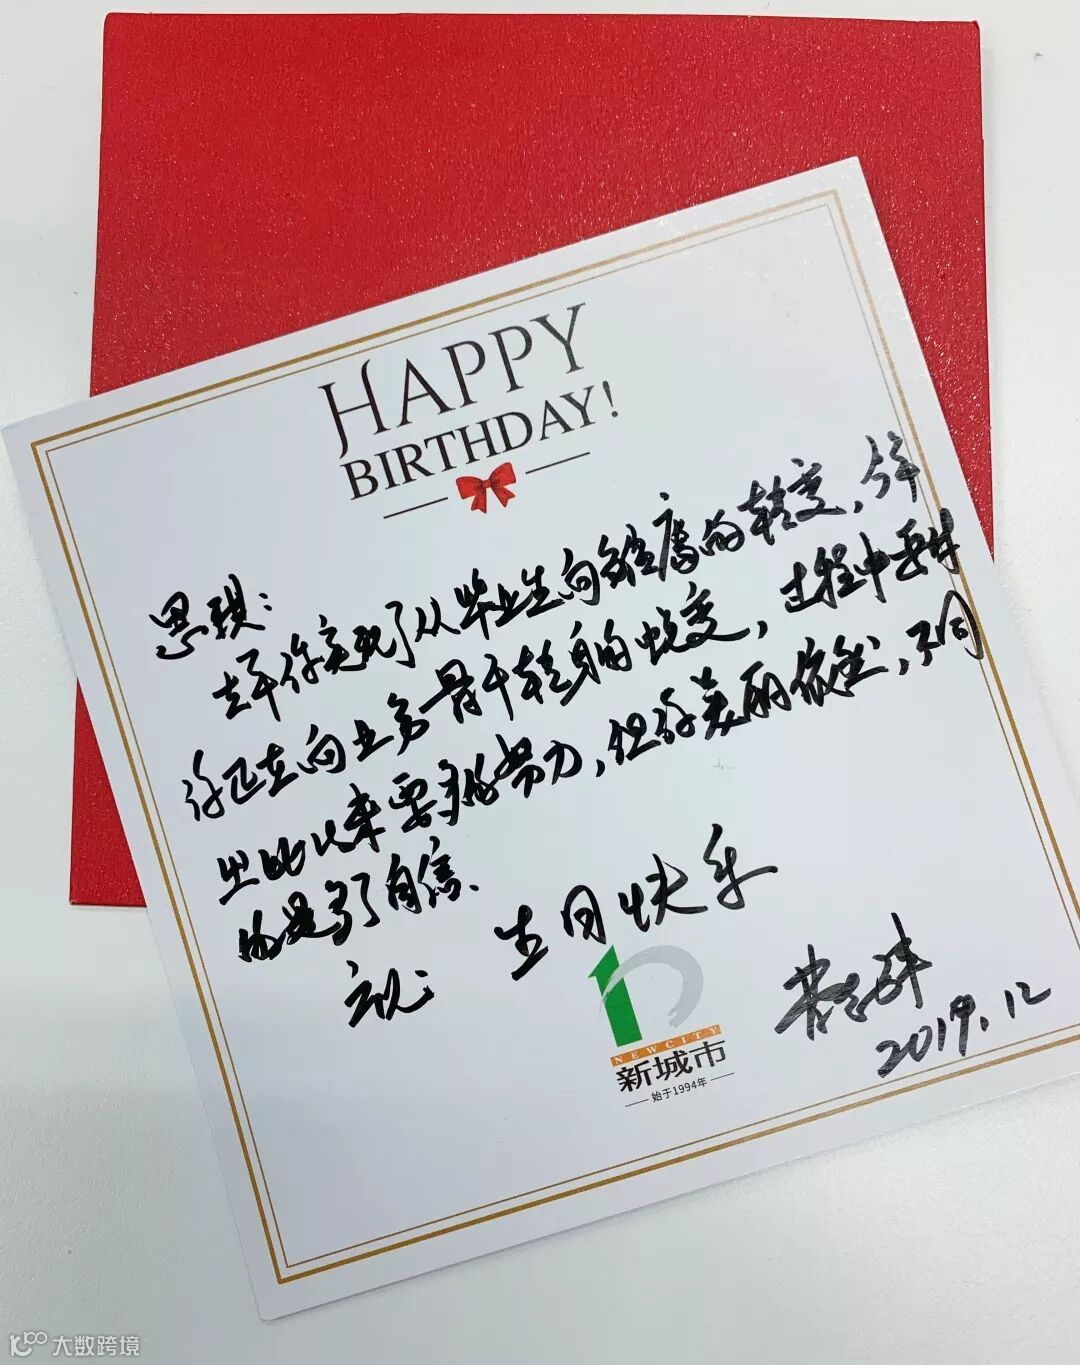 HAPPY
BIRTHDAY!
思琪：
去年你完成了从毕业生向雏鹰的转变，今年
你正在向业务骨干转身的蜕变，过程中要付
出比以来要多的努力，但你美丽依然，不同
的是多了自信、
祝： 生日快乐
2019.12
NEWCITY
新城市
始于1994年
大数跨境